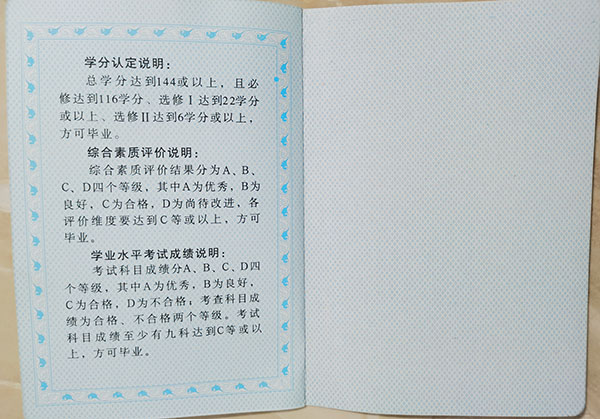 学分认定说明：
总学分达到144或以上，且必
修达到116学分、选修Ⅰ达到22学分
或以上、选修Ⅱ达到6学分或以上，
方可毕业。
综合素质评价说明：
综合素质评价结果分为A、B、
C、D四个等级，其中A为优秀，B为
良好，C为合格，D为尚待改进，各
评价维度要达到C等或以上，方可
毕业。
学业水平考试成绩说明：
考试科目成绩分A、B、C、D四
个等级，其中A为优秀，B为良好，
C为合格，D为不合格；考查科目成
绩为合格、不合格两个等级。考试
科目成绩至少有九科达到C等或以
上，方可毕业。